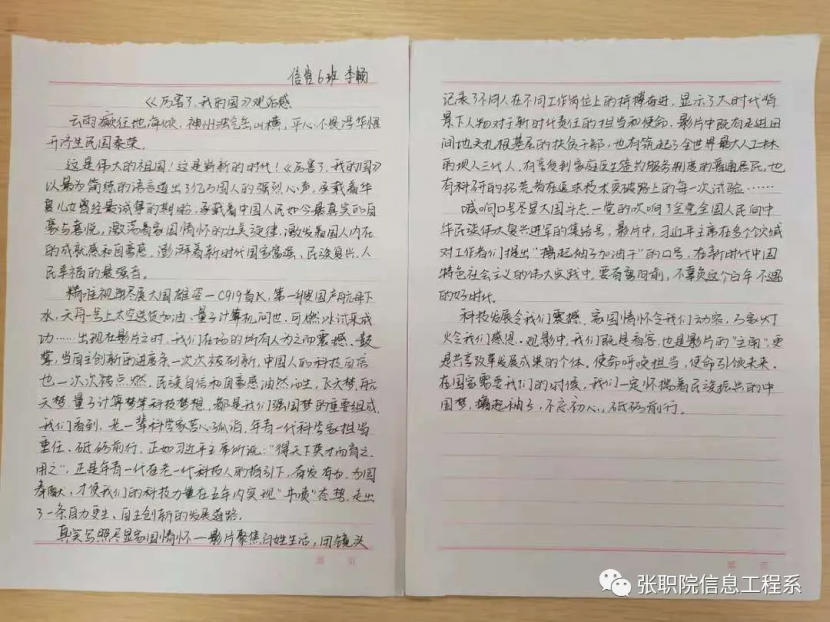 信管6班 李畅
《厉害了,我的国》观后感
这是伟大的祖国!这是崭新的时代!《厉害了,我的国》
以最为简练的语言道出13亿中国人的强烈心声,承载着华
夏儿女曾经最诚挚的期盼,承载着中国人民如今最真实的自
豪与喜悦,激荡着家国情怀的壮美旋律,激发着国人内在
的成就感和自豪感,澎湃着新时代国家富强、民族复兴、人
民幸福的最强音。
精准视觉尽展大国雄姿—C919首飞,第一艘国产航母下
水,天舟一号上太空送货加油、量子计算机问世,可燃冰试采成
功……出现在影片之时,我们在场的所有人为之而震撼、鼓
掌,当自主创新的进度条一次次被刷新,中国人的科技自信
也一次次被点燃,民族自信和自豪感油然而生,飞天梦、航
天梦、量子计算梦等科技梦想,都是我们强国梦的重要组成,
我们看到,老一辈科学家苦心孤诣,年青一代科学家担当
重任、砥砺前行。正如习近平主席所说:"得天下英才而育之、
用之",正是年青一代在老一代科技人的指引下,奋发有为,为国
奉献,才使我们的科技力量在五年内实现"井喷"态势,走出
了一条自力更生、自主创新的发展道路。
真实写照尽显家国情怀—影片聚焦百姓生活,用镜头
记录了不同人在不同工作岗位上的拼搏奋进,显示了大时代背
景下人物对于新时代责任的担当和使命,影片中既有走进田
间地头扎根基层的扶贫干部,也有筑起了全世界最大人工林
的坝上三代人,有享受到家庭医生签约服务制度的普通居民,也
有科研的拓荒者在追求技术突破路上的每一次试验……
喊响口号尽显大国斗志—党的吹响了全党全国人民向中
华民族伟大复兴进军的集结号,影片中,习近平主席在多个次城
对工作者们提出"撸起袖子加油干"的口号,在新时代中国
特色社会主义的伟大实践中,要奋勇向前,不辜负这个百年不遇
的好时代。
科技发展令我们震撼、家国情怀令我们动容,万家灯
火令我们感恩。观影中,我们既是看客,也是影片的"主角",更
是共享改革发展成果的个体。使命呼唤担当,使命引领未来。
在国家需要我们的时候,我们一定怀揣着民族振兴的中
国梦,撸起袖子,不忘初心,砥砺前行。
张职院信息工程系